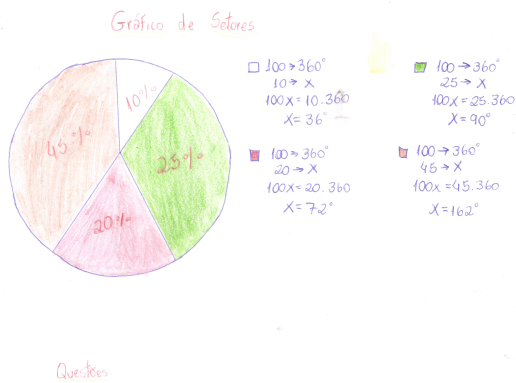 Gráfico de Setores
10%
25%
20%
45%
100→360°
10→X
100X=10.360
X=36°
100→360°
25→X
100X=25.360
X=90°
100→360°
20→X
100X=20.360
X=72°
100→360°
45→X
100X=45.360
X=162°
Questões